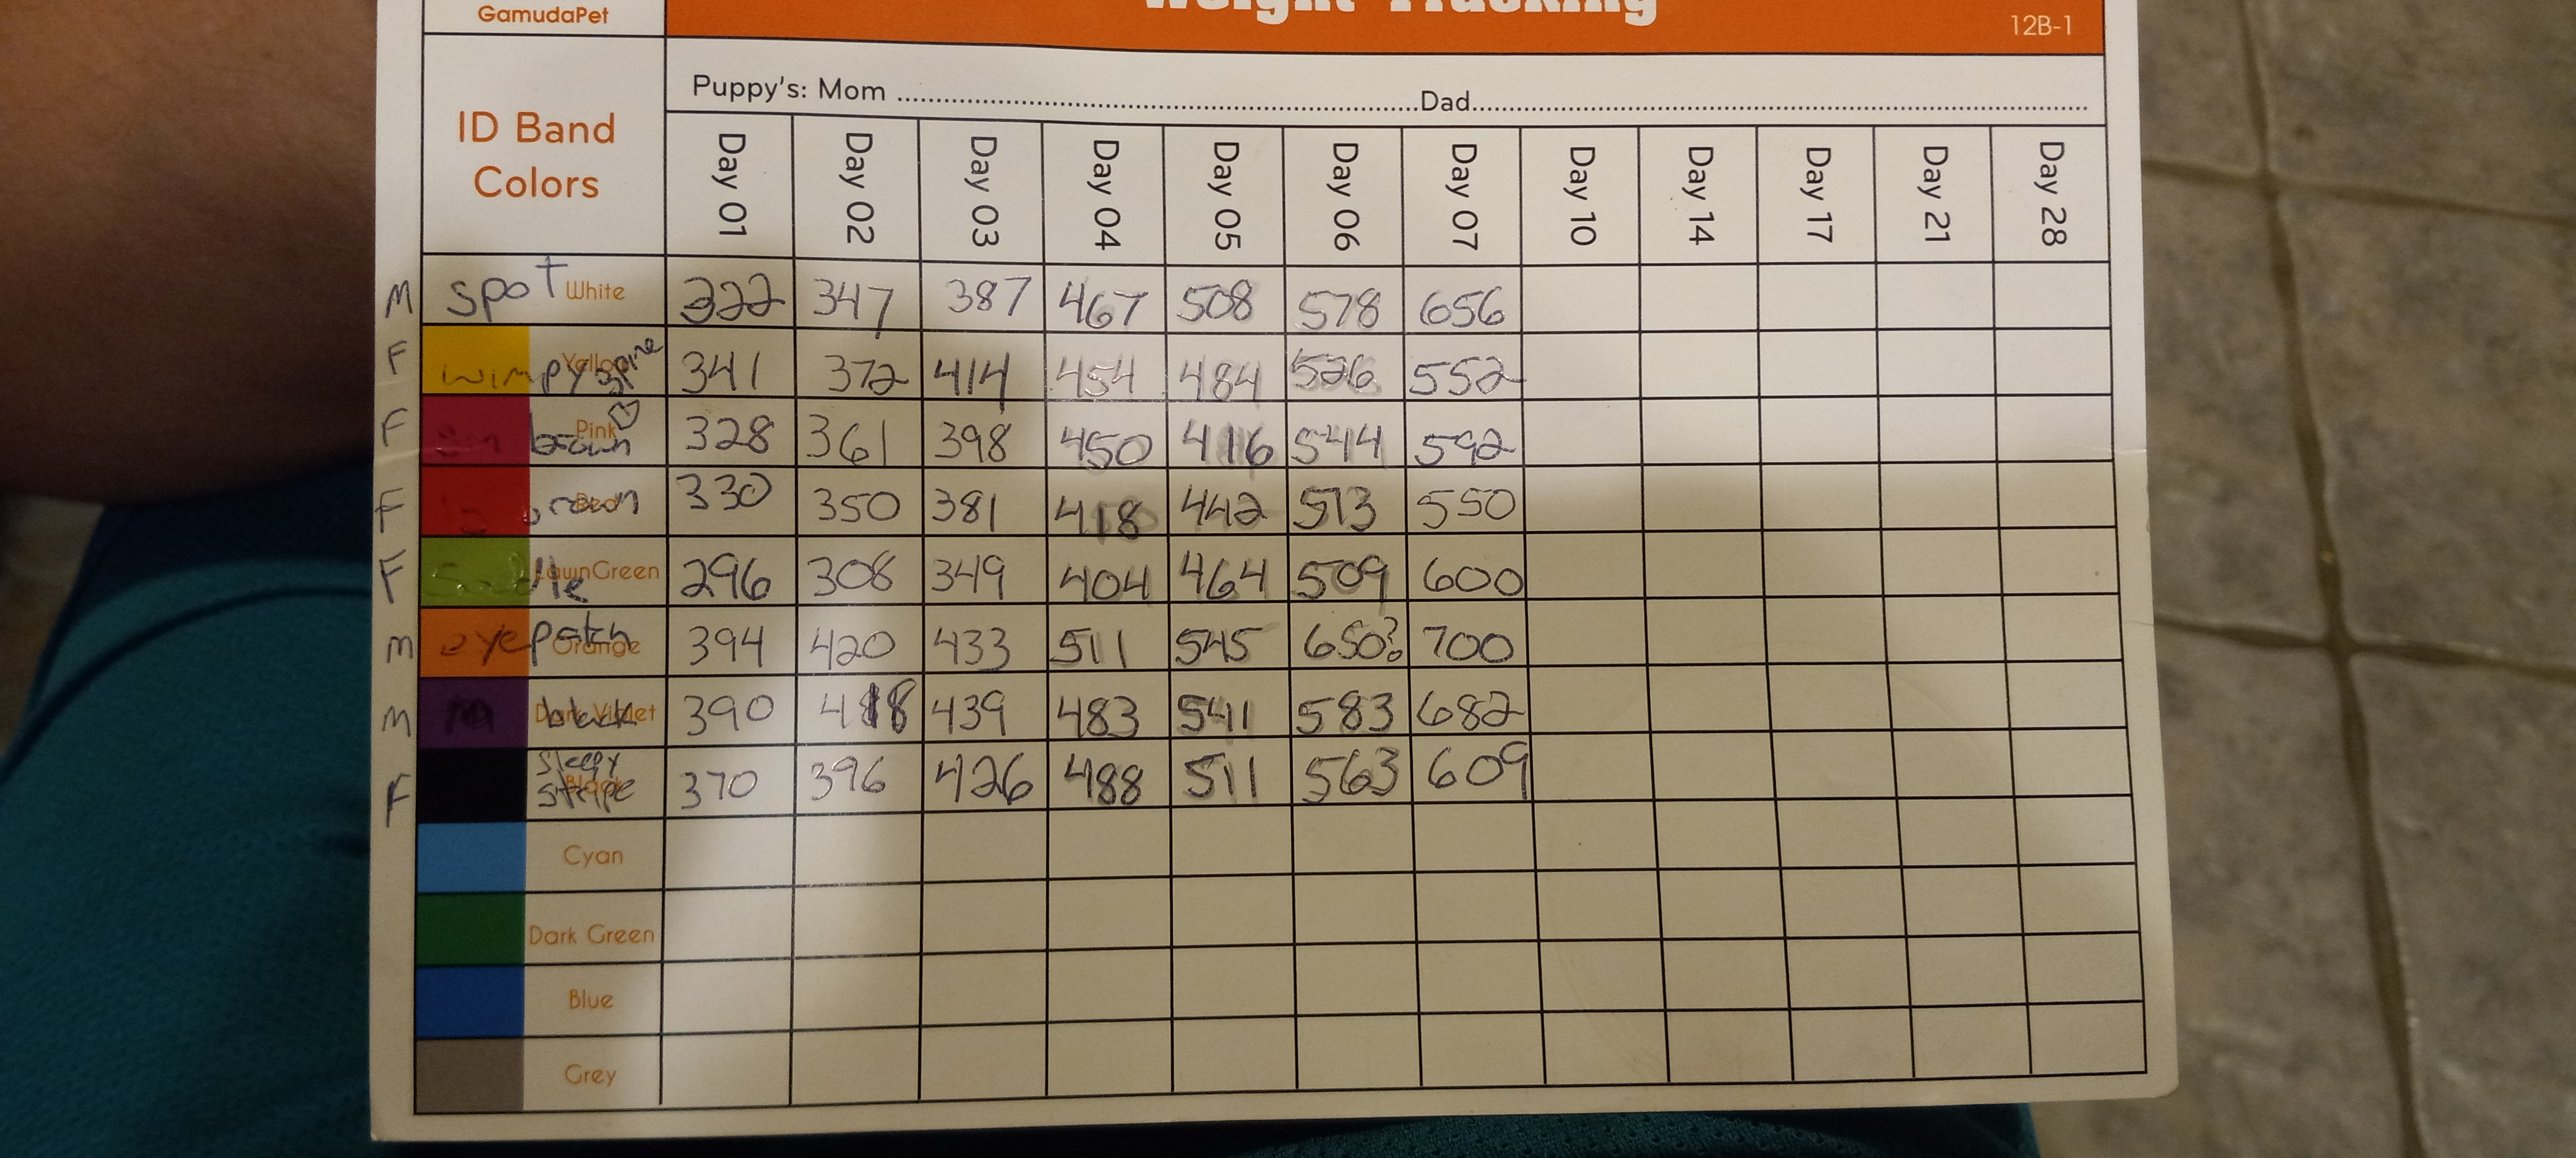 GamudaPet
Weight Tracking
12B-1
Puppy's: Mom Dad
ID Band
Colors
Day 01 Day 02 Day 03 Day 04 Day 05 Day 06 Day 07 Day 10 Day 14 Day 17 Day 21 Day 28
M spot White 322 347 387 467 508 578 656
F wimpy spine Yellow 341 372 414 454 484 526 552
F brown Pink 328 361 398 450 416 544 592
F brown Red 330 350 381 418 442 513 550
F LawnGreen 296 308 349 404 464 509 600
M eyepatch Orange 394 420 433 511 545 650? 700
M black Dark Violet 390 418 439 483 541 583 682
F sleepy stripe Black 370 396 426 488 511 563 609
Cyan
Dark Green
Blue
Grey